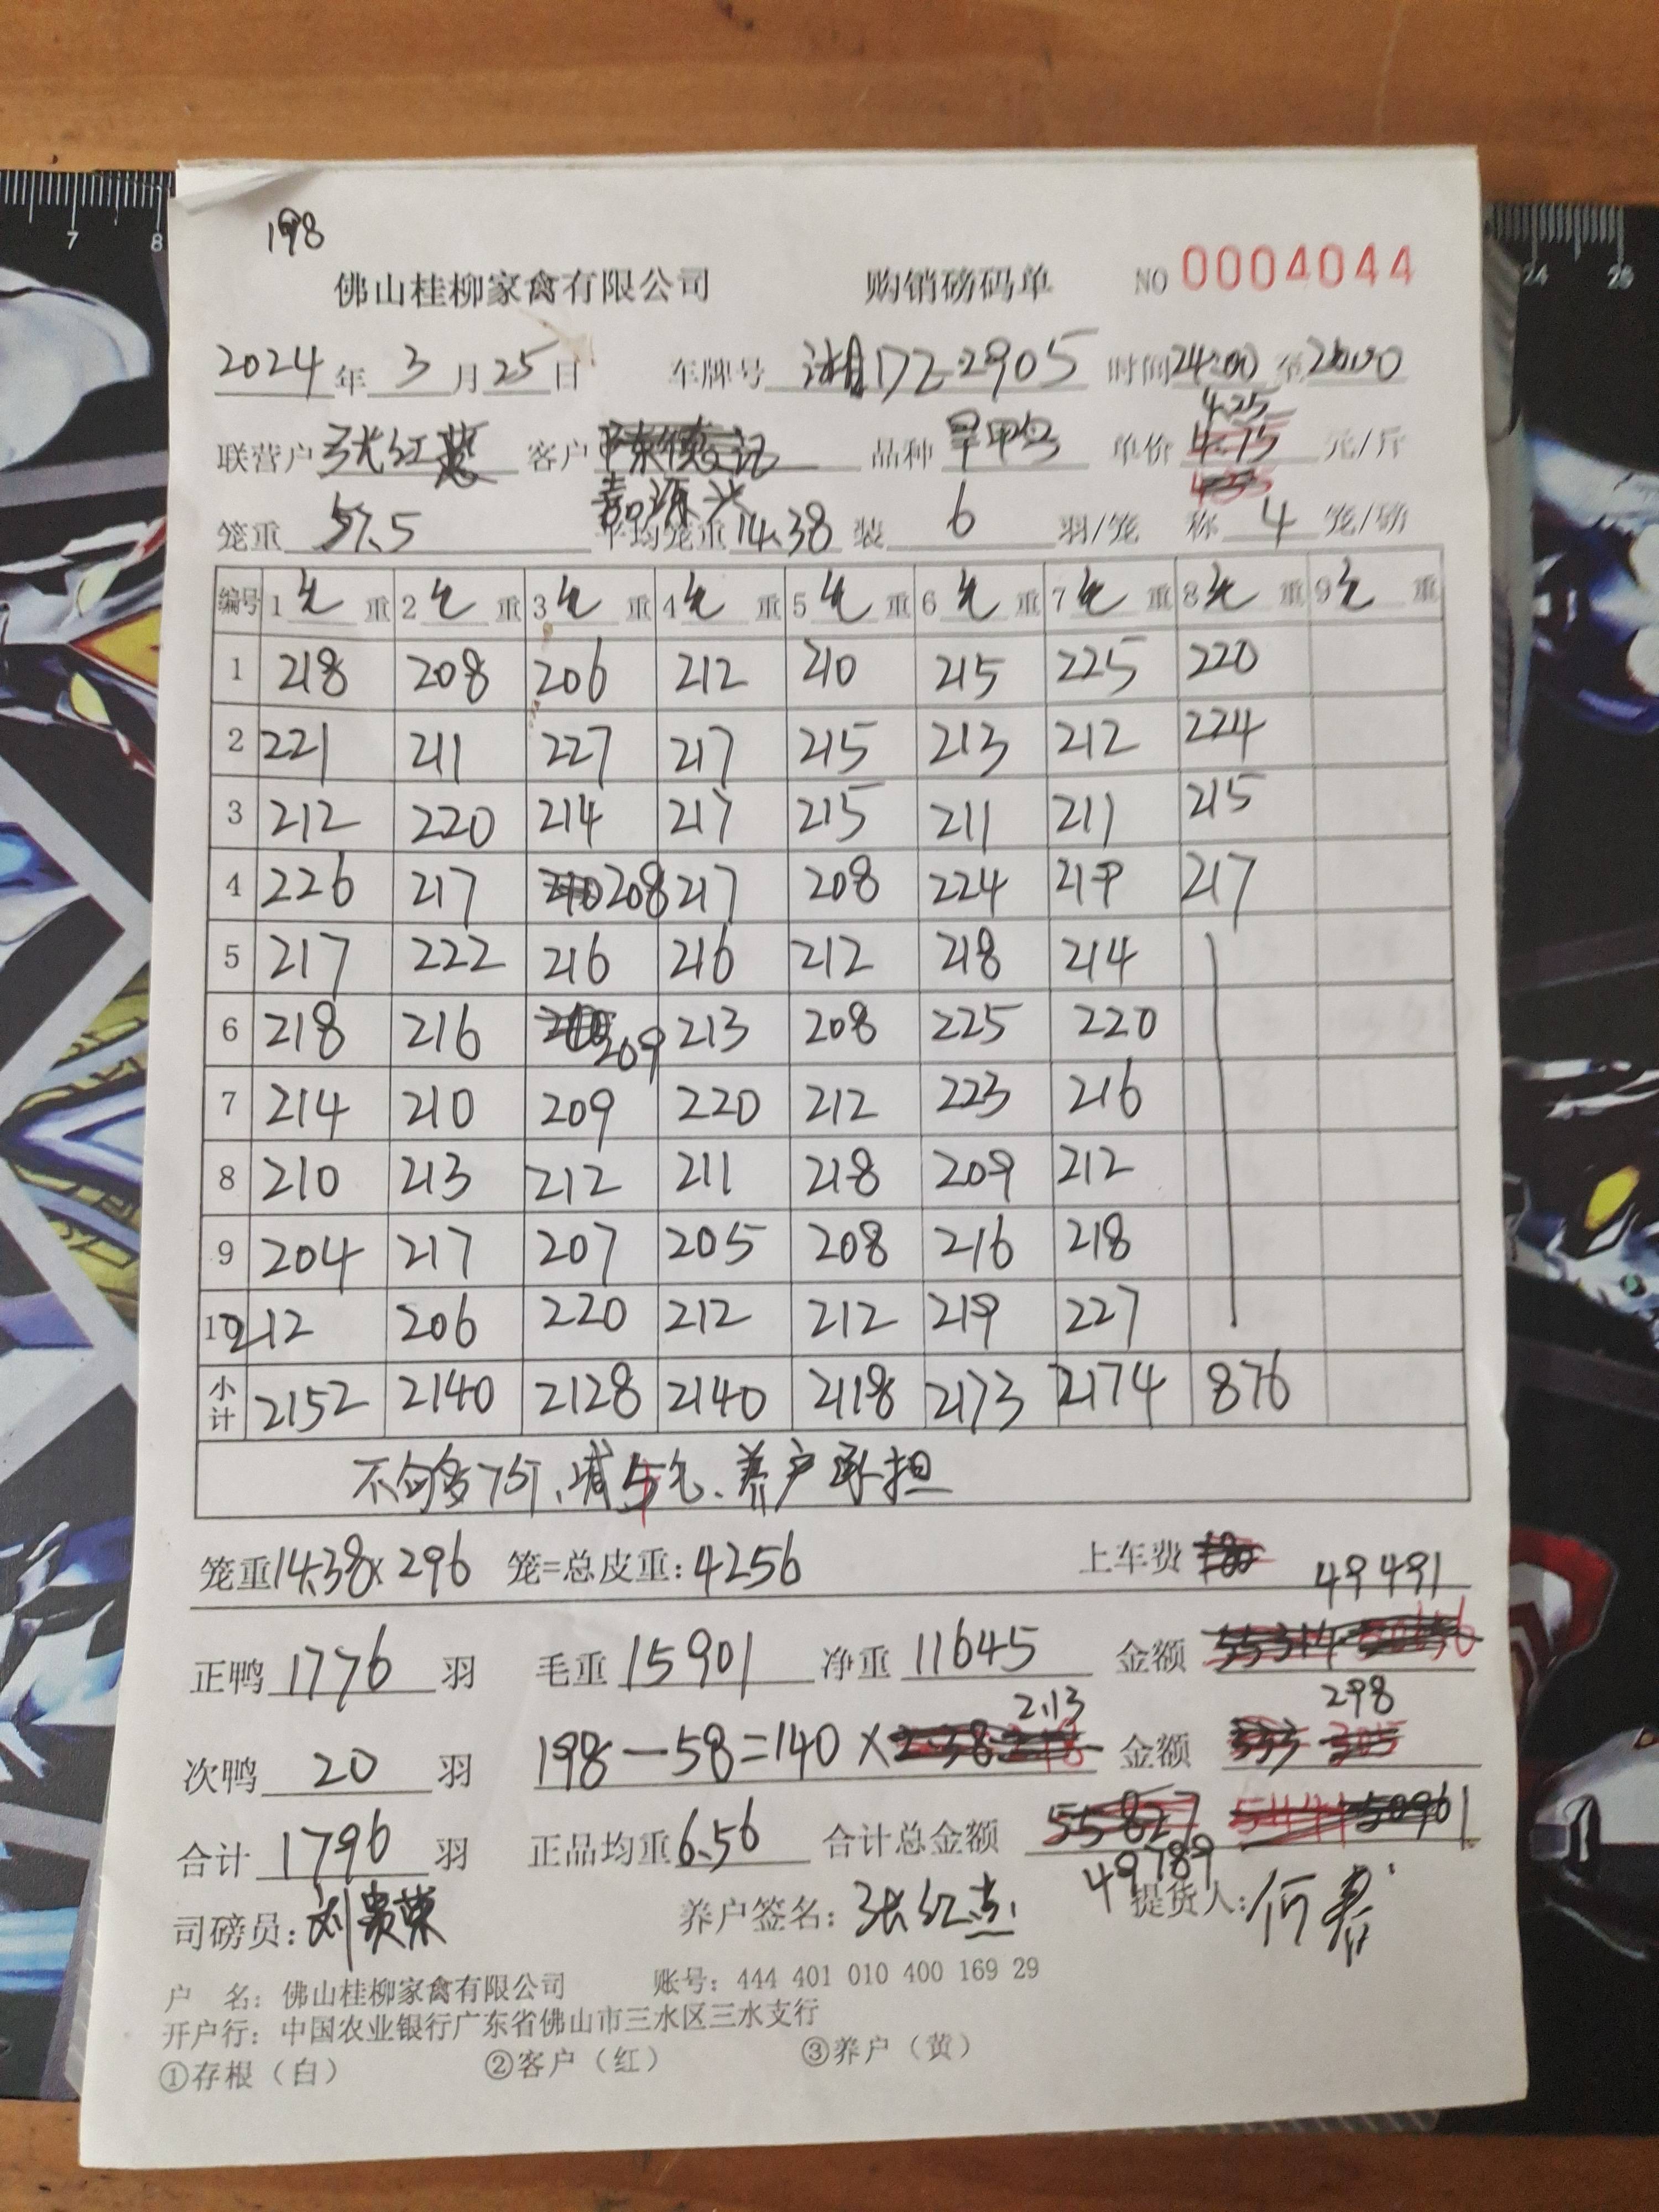 198
佛山桂柳家禽有限公司 购销磅码单 NO 0004044
2024年 3月25日 车牌号 湘D72905 时间24:00 至26:00
4.25
联营户 张红 客户 陈德记 品种 单价 4.15 元/斤
嘉源兴
笼重 57.5 平均笼重14.38 装 6 羽/笼 称 4 笼/磅
编号 1 毛重 2 毛重 3 毛重 4 毛重 5 毛重 6 毛重 7 毛重 8 毛重 9 毛重
1 218 208 206 212 210 215 225 220
2 221 211 227 217 215 213 212 224
3 212 220 214 217 215 211 211 215
4 226 217 208 217 208 224 219 217
5 217 222 216 216 212 218 214
6 218 216 209 213 208 225 220
7 214 210 209 220 212 223 216
8 210 213 212 211 218 209 212
9 204 217 207 205 208 216 218
10 212 206 220 212 212 219 227
小计 2152 2140 2128 2140 2118 2173 2174 876
不够6.7斤、减5毛、养户承担
笼重14.38×296 笼=总皮重:4256 上车费 180
49491
正鸭 1776 羽 毛重 15901 净重 11645 金额 55314
2.13 298
次鸭 20 羽 198-58=140× 金额
合计 1796 羽 正品均重6.56 合计总金额 55827 50961
49789
司磅员:刘贵荣 养户签名:张红 提货人:何
户 名:佛山桂柳家禽有限公司 账号:444 401 010 400 169 29
开户行:中国农业银行广东省佛山市三水区三水支行
①存根(白) ②客户(红) ③养户(黄)
7 8 24 25